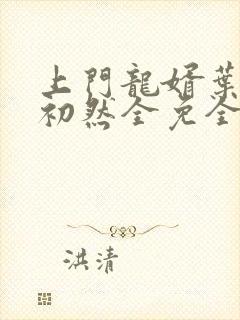 上門龍婿葉
初然全免全
洪清